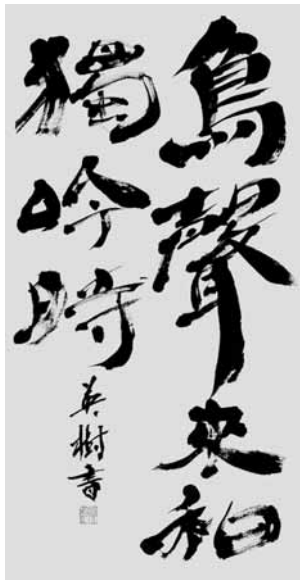 鳥聲來和
獨吟時
英樹書